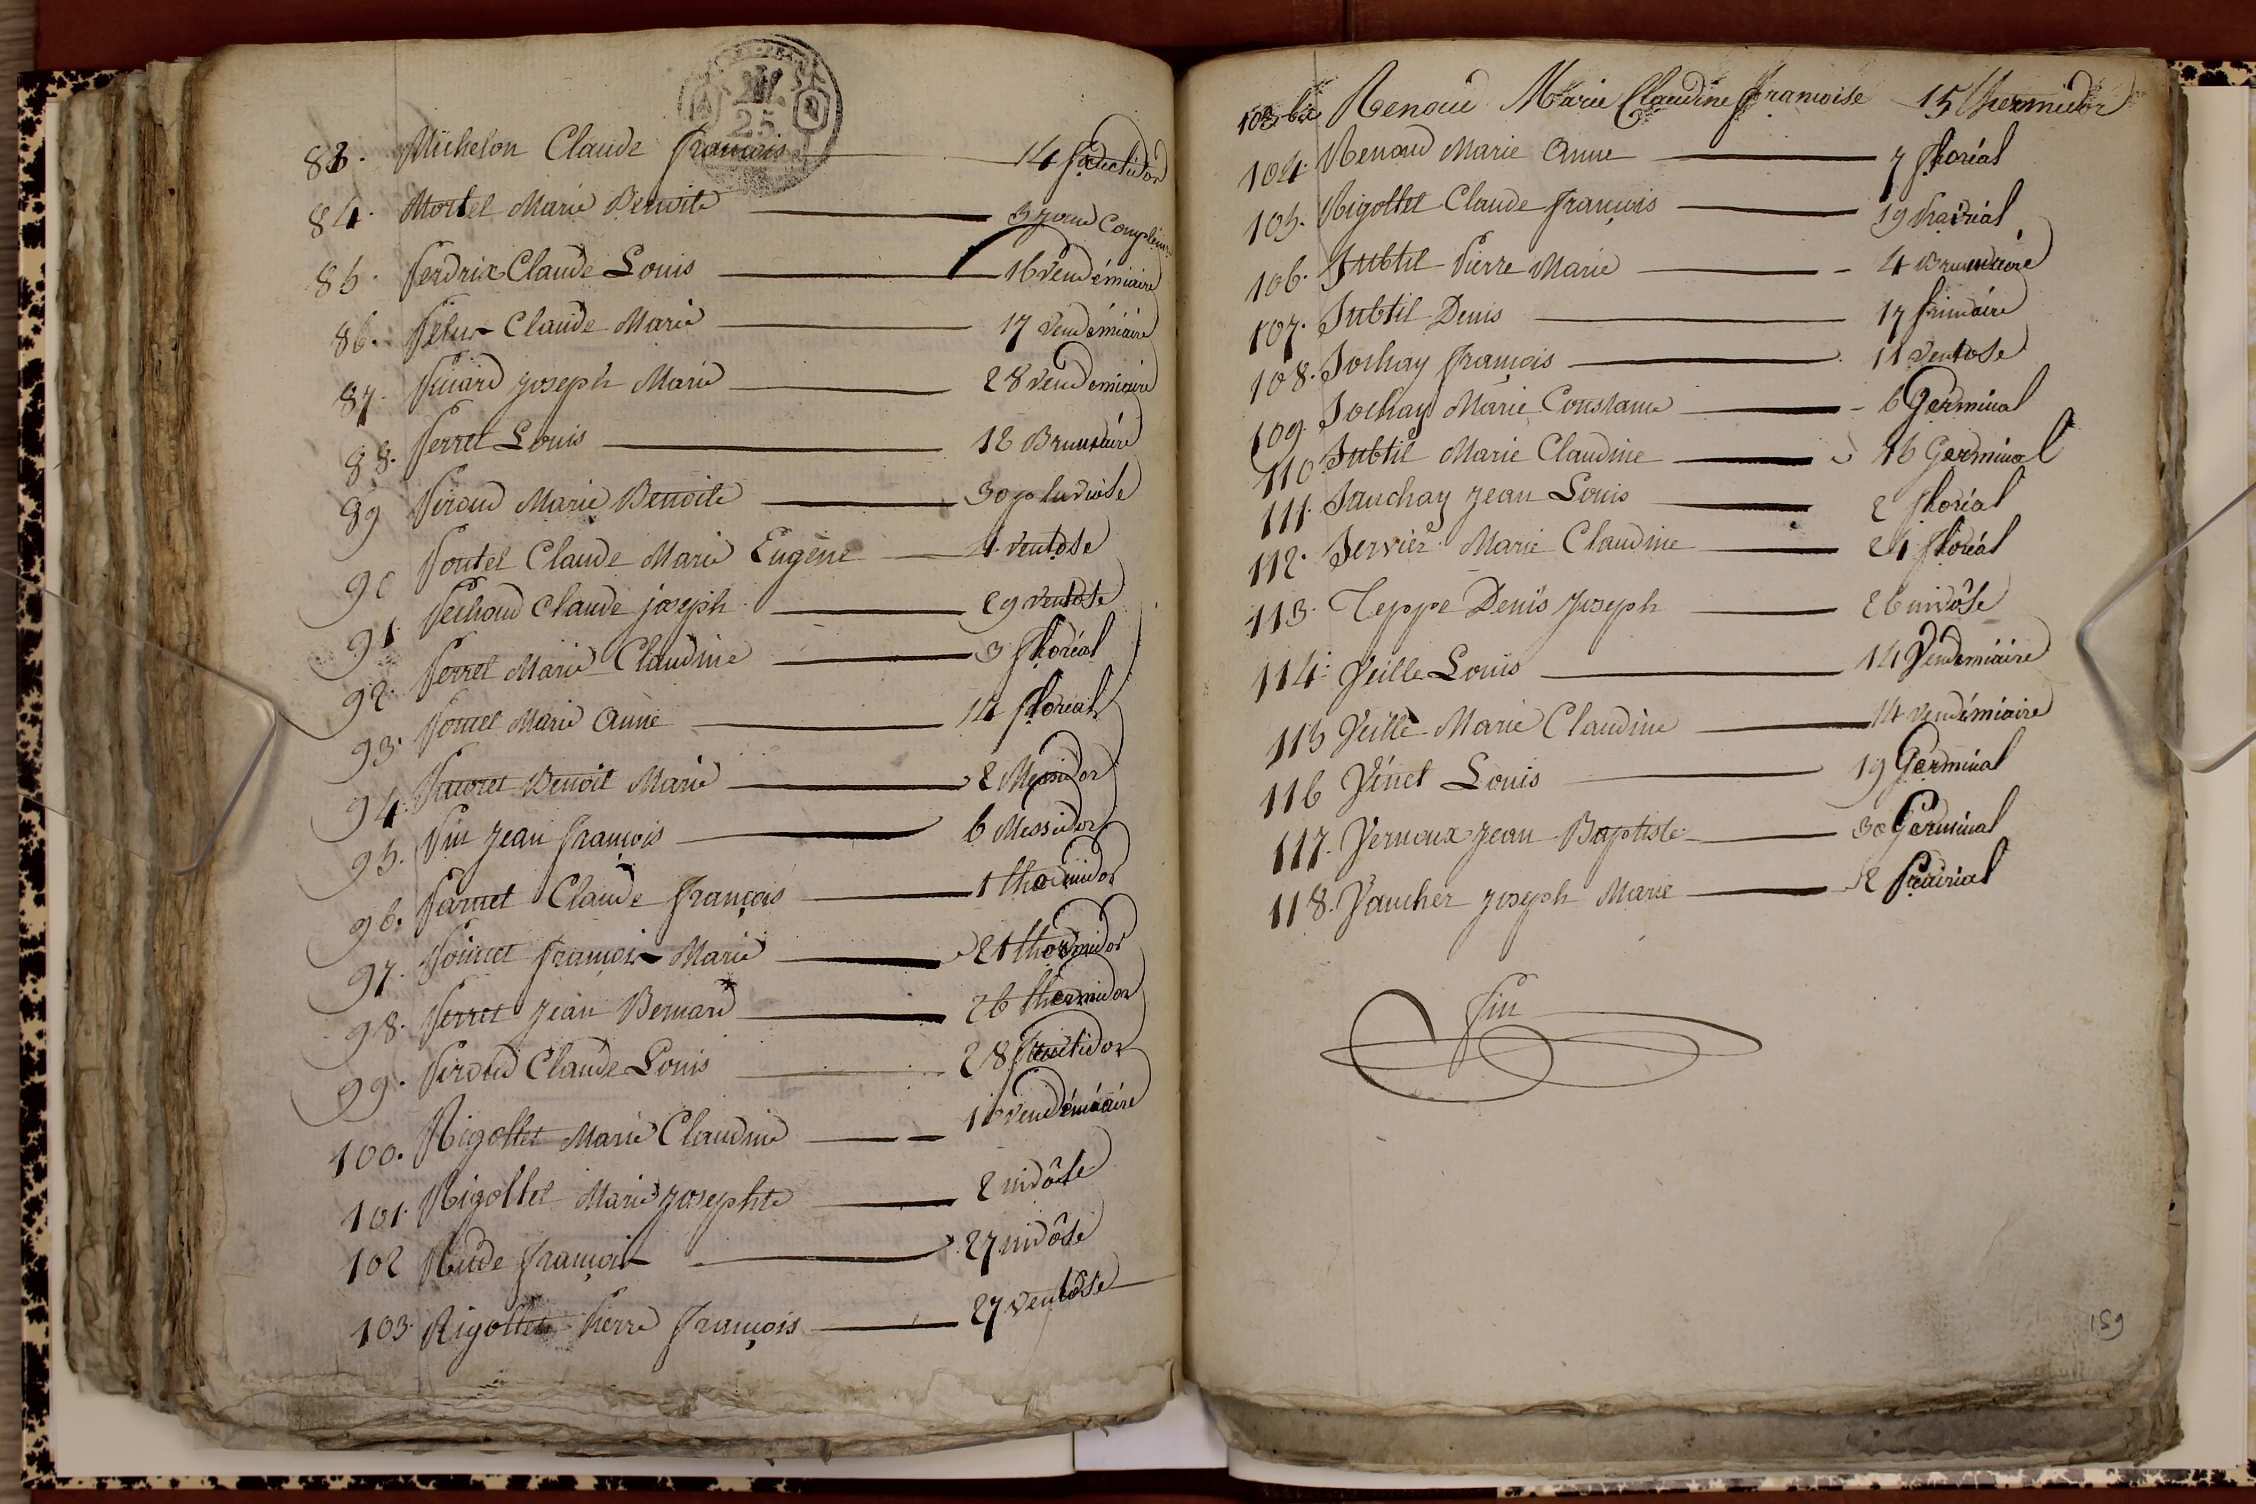 83. Michelon Claude François 14 fructidor
84. Mortel Marie Benoite 3 jour Complém
85. Perdrix Claude Louis 16 Vendémiaire
86. Claude Marie 17 Vendémiaire
87. Joseph Marie 28 Vendémiaire
88. Perret Louis 18 Brumaire
89 Piroud Marie Benoite 30 pluviôse
90 Poutet Claude Marie Eugène 4 ventose
91. Claude joseph 29 ventôse
92. Perret Marie Claudine 3 floréal
93. Marie Anne 14 floréal
94. Benoit Marie 2 Messidor
95. Pin Jean François 6 Messidor
96. Claude François 1 thermidor
97. François Marie 21 thermidor
98. Perret Jean Bernard 26 thermidor
99. Piroud Claude Louis 28 fructidor
100. Rigollet Marie Claudine vendémiaire
101. Rigollet Marie Josephte 2 nivôse
102 Rude François 27 nivôse
103. Rigollet Pierre François 27 ventôse
103 bis Renoud Marie Claudine Francoise 15 thermidor
104. Renoud Marie Anne 7 floréal
105. Rigollet Claude François 19 prairial
106. Subtil Pierre Marie 4 Brumaire
107. Subtil Denis 17 frimaire
108. Sochay François 11 ventose
109. Sochay Marie Constance 6 Germinal
110 Subtil Marie Claudine 16 Germinal
111. Sauchay Jean Louis 2 floréal
112. Servier Marie Claudine 24 floréal
113. Teppe Denis Joseph 26 nivôse
114. Veille Louis 14 Vendémiaire
115 Veille Marie Claudine 14 vendémiaire
116 Venet Louis 19 Germinal
117. Vernoux Jean Baptiste 30 Germinal
118. Vaucher Joseph Marie prairial
fin
159